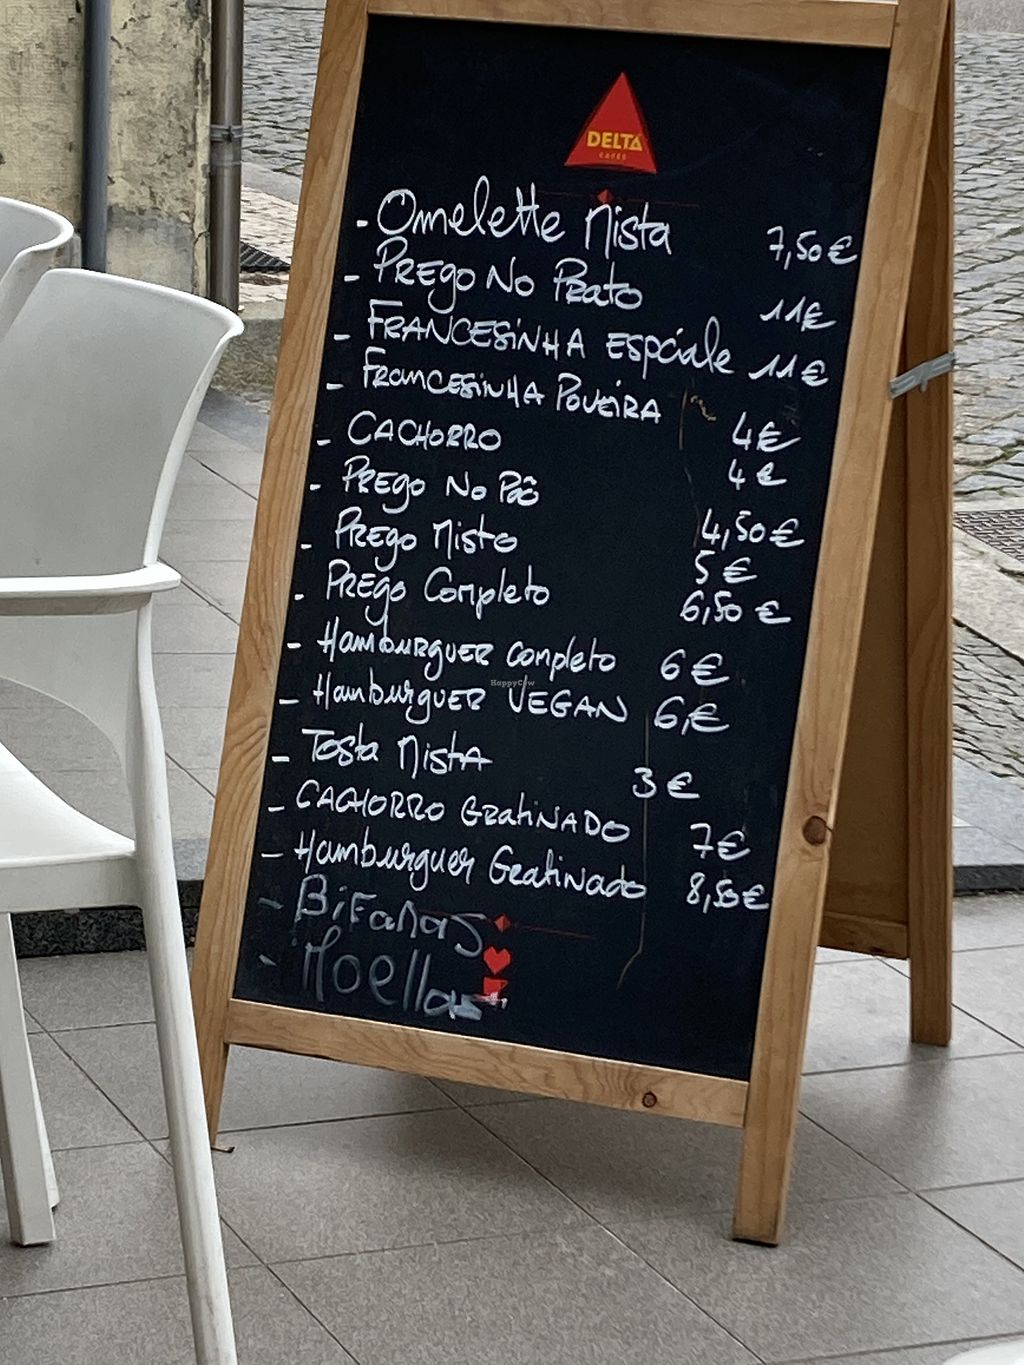 DELTA
CAFÉS
- Omelette Mista 7,50€
- PREGO NO PRATO 11€
- FRANCESINHA ESPCiALe 11€
- FRANCESINHA POVEIRA 4€
- CACHORRO 4€
- PREGO NO PÃO 4,50€
- PREGO MISTO 5€
- PREGO COMPLETO 6,50€
- HAMBURGUER completo 6€
- HAMBURGUER VEGAN 6,€
- TOSTA MISTA 3€
- CACHORRO GRATINADO 7€
- Hamburguer Gratinado 8,50€
- BiFANAS
- Moellas
HappyCow